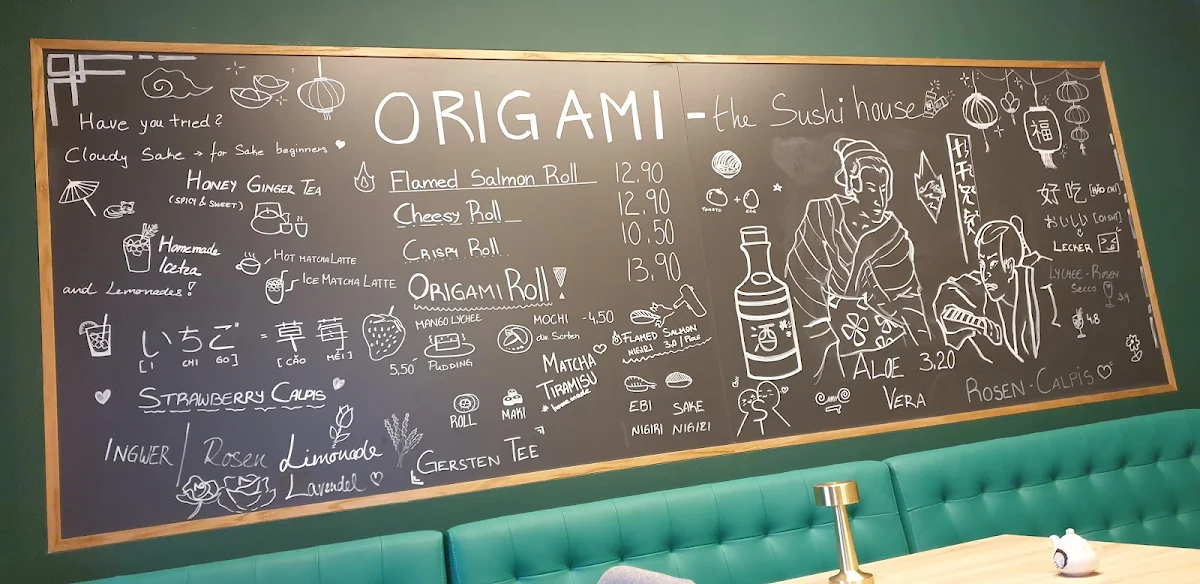 Have you tried?
Cloudy Sake → for Sake beginners
HONEY GINGER TEA
(SPICY & SWEET)
Homemade
Icetea
and Lemonades!
HOT MATCHA LATTE
ICE MATCHA LATTE
いちご = 草莓
[I CHI GO] [CǍO MÉI]
STRAWBERRY CALPIS
INGWER / Rosen Limonade
Lavendel
ORIGAMI - the Sushi house
Flamed Salmon Roll 12.90
Cheesy Roll 12.90
CRISPY Roll 10.50
ORIGAMI Roll! 13.90
MANGO LYCHEE
PUDDING
5,50
MOCHI - 4,50
div. Sorten
MATCHA
TIRAMISU
* homemade
ROLL
MAKI
GERSTEN TEE
FLAMED SALMON
NIGIRI 3.0 / Piece
EBI
NIGIRI
SAKE
NIGIRI
TOMATO + EGG
酒
ALOE 3.20
VERA
福
好吃 [HǍO CHĪ]
おいしい [OISHI]
LECKER
LYCHEE-ROSEN
SECCO 3,9
4,8
ROSEN-CALPIS